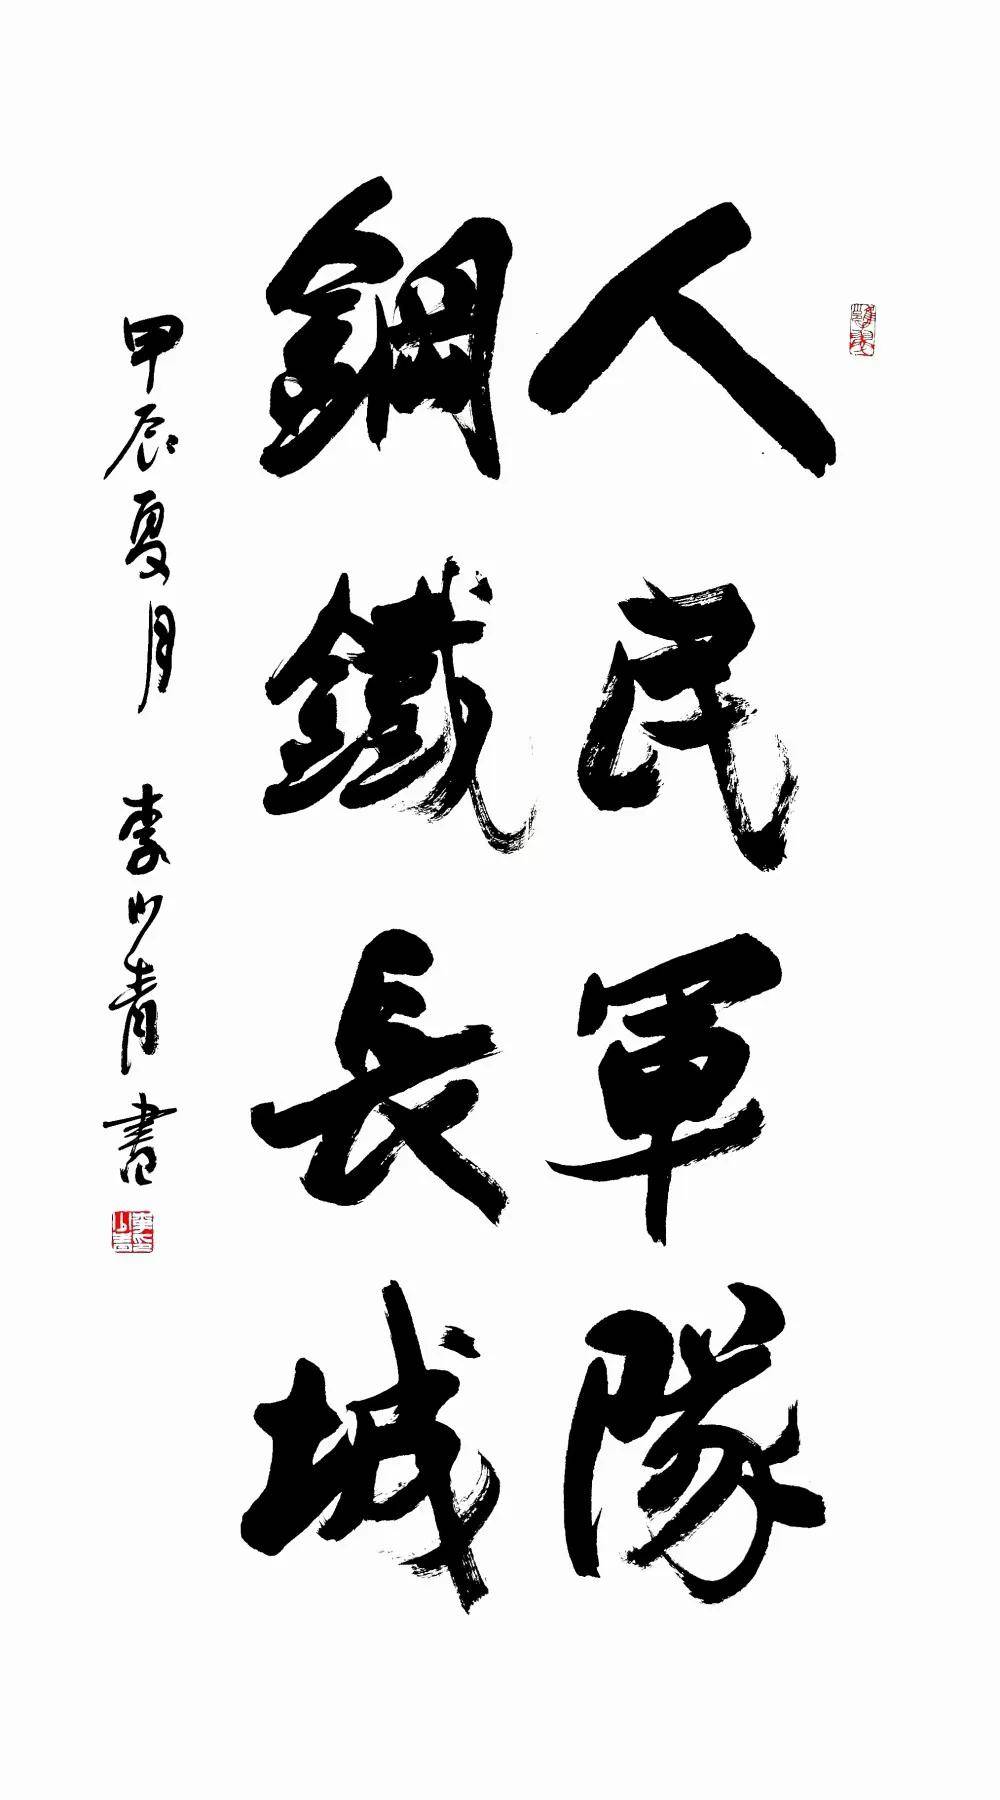 人民軍隊
鋼鐵長城
甲辰夏月 李小青書